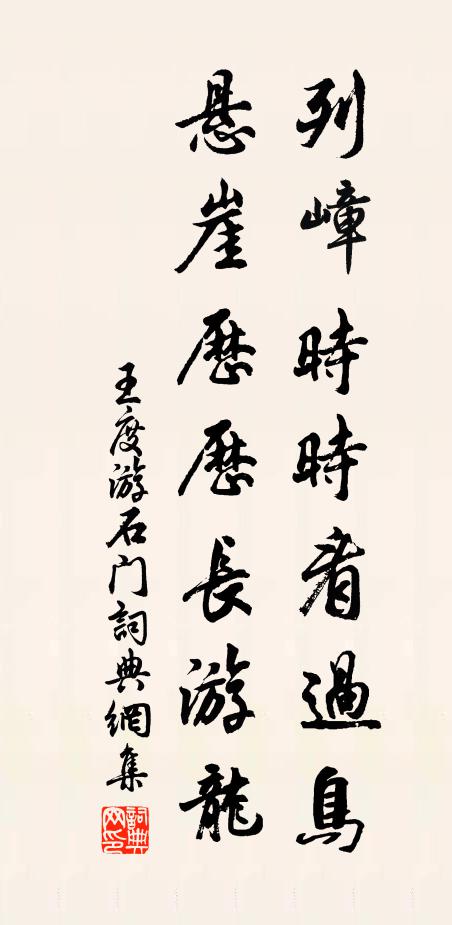 列嶂時時看過鳥
悬崖歷歷長游龍
王度游石门詞典網集
詞典網印